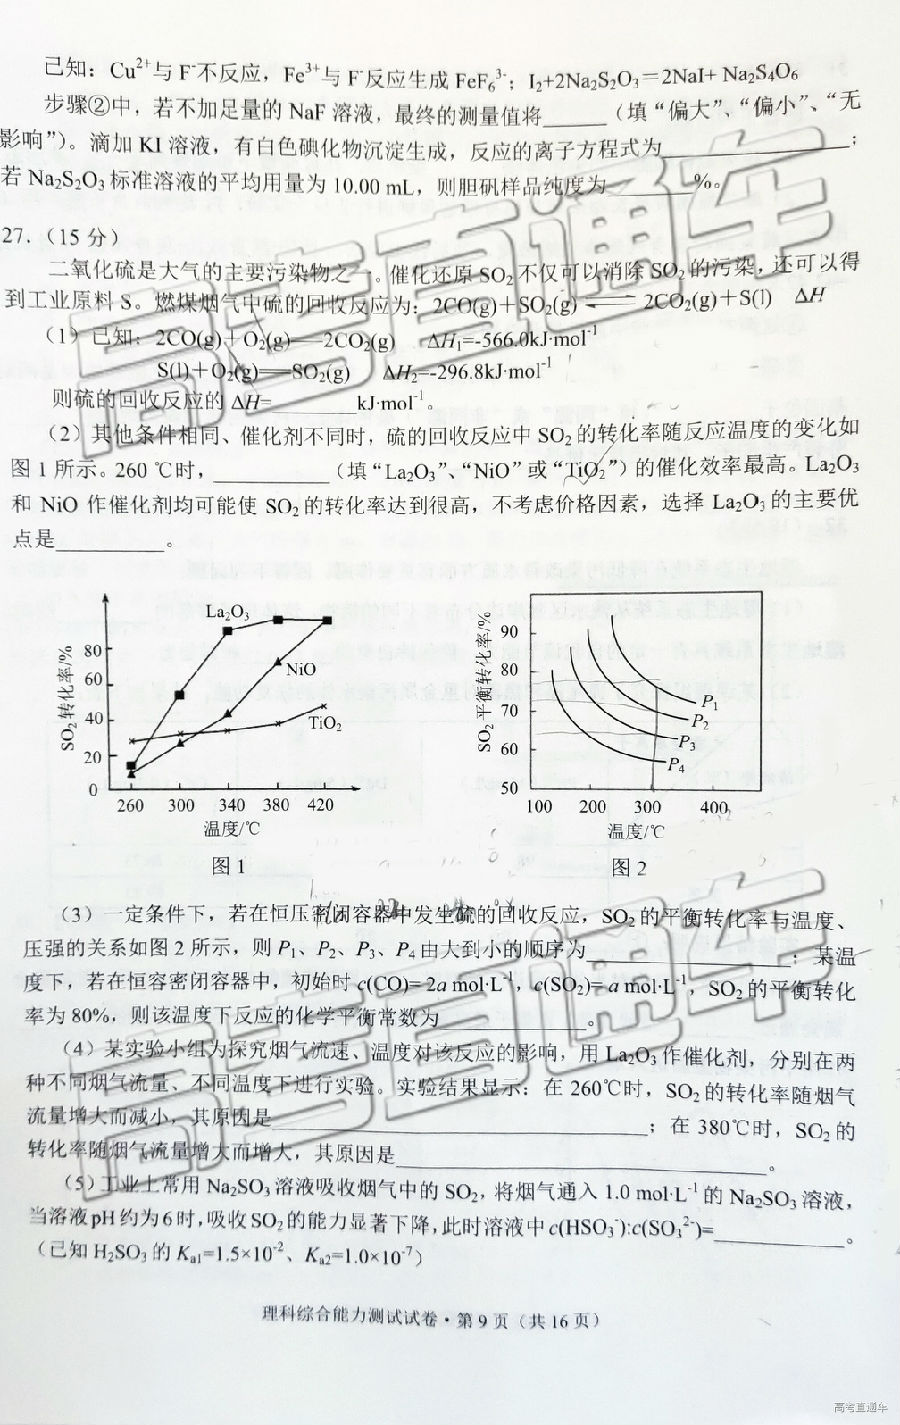 已知：Cu²⁺与F⁻不反应，Fe³⁺与F⁻反应生成FeF₆³⁻；I₂+2Na₂S₂O₃＝2NaI+ Na₂S₄O₆
步骤②中，若不加足量的NaF溶液，最终的测量值将______（填“偏大”、“偏小”、“无
影响”）。滴加KI溶液，有白色碘化物沉淀生成，反应的离子方程式为__________________；
若Na₂S₂O₃标准溶液的平均用量为10.00 mL，则胆矾样品纯度为________%。
27.（15分）
二氧化硫是大气的主要污染物之一。催化还原SO₂不仅可以消除SO₂的污染，还可以得
到工业原料S。燃煤烟气中硫的回收反应为：2CO(g)＋SO₂(g) ⇌ 2CO₂(g)＋S(l) ΔH
（1）已知：2CO(g)＋O₂(g)══2CO₂(g) ΔH₁=-566.0kJ·mol⁻¹
S(l)＋O₂(g)══SO₂(g) ΔH₂=-296.8kJ·mol⁻¹
则硫的回收反应的ΔH=________kJ·mol⁻¹。
（2）其他条件相同、催化剂不同时，硫的回收反应中SO₂的转化率随反应温度的变化如
图1所示。260 ℃时，__________（填“La₂O₃”、“NiO”或“TiO₂”）的催化效率最高。La₂O₃
和 NiO 作催化剂均可能使SO₂的转化率达到很高，不考虑价格因素，选择La₂O₃的主要优
点是__________。
La₂O₃
NiO
TiO₂
SO₂转化率/%
80
60
40
20
0
260 300 340 380 420
温度/℃
图1
P₁
P₂
P₃
P₄
SO₂平衡转化率/%
90
80
70
60
50
100 200 300 400
温度/℃
图2
（3）一定条件下，若在恒压密闭容器中发生硫的回收反应，SO₂的平衡转化率与温度、
压强的关系如图2所示，则P₁、P₂、P₃、P₄由大到小的顺序为__________________；某温
度下，若在恒容密闭容器中，初始时c(CO)= 2a mol·L⁻¹，c(SO₂)= a mol·L⁻¹，SO₂的平衡转化
率为80%，则该温度下反应的化学平衡常数为______________。
（4）某实验小组为探究烟气流速、温度对该反应的影响，用La₂O₃作催化剂，分别在两
种不同烟气流量、不同温度下进行实验。实验结果显示：在260℃时，SO₂的转化率随烟气
流量增大而减小，其原因是__________________________________；在380℃时，SO₂的
转化率随烟气流量增大而增大，其原因是__________________________________。
（5）工业上常用Na₂SO₃溶液吸收烟气中的SO₂，将烟气通入1.0 mol·L⁻¹的Na₂SO₃溶液，
当溶液pH约为6时，吸收SO₂的能力显著下降，此时溶液中c(HSO₃⁻):c(SO₃²⁻)=____________。
（已知H₂SO₃的Kₐ₁=1.5×10⁻²、Kₐ₂=1.0×10⁻⁷）
理科综合能力测试试卷·第9页（共16页）
高考直通车
高考直通车
高考直通车